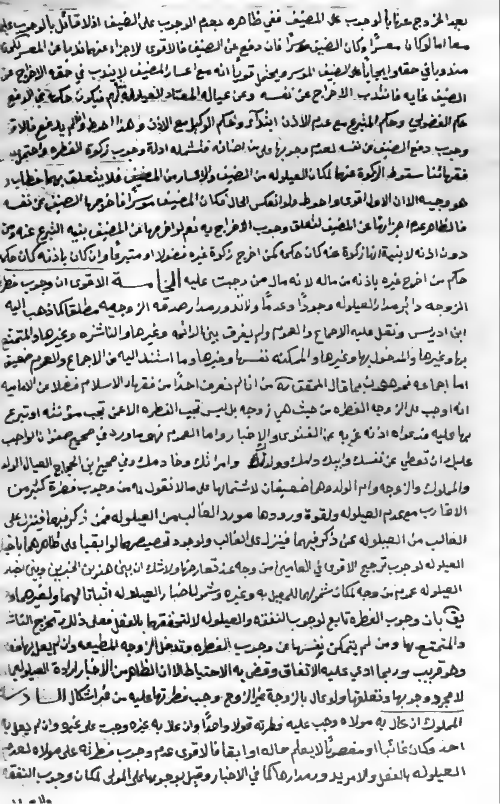 بعد الخروج عدم الوجوب على المضيف ففي ظاهره بعدم الوجوب على الضيف اذ لا قائل بالوجوب عليه
معا اما لو كان معسرا وكان الضيف موسرا فان دفع عن الضيف فالاقوى لاجزاء عنها
مندوبا في حقه على الضيف الموسر قويا انه مع اعسار المضيف لا يندب في حقه الاخراج عن
الضيف عن نفسه وعن عياله
حكم الفضولي وحكم المتبرع مع عدم الاذن ابتداء وحكم الوكيل مع الاذن وهذا احوط ولم يدفع فالاقوى
وجوب دفع الضيف عن نفسه لعدم وجوبها على من اضافه فتشمله ادلة وجوب زكوة الفطرة ويحتمل
سقوط الزكوة عنهما لمكان العيلولة من الضيف والاعسار من المضيف فلا يتعلق بهما خطاب
هو وجيه الا ان الاول اقوى واحوط ولو انعكس الحال فكان المضيف موسرا فاخرجها الضيف عن نفسه
فالظاهر عدم اجزائها عن المضيف لتعلق وجوب الاخراج به نعم لو اخرجها عن المضيف بنية التبرع عنه من
دون اذنه لا بنية انها زكوة عنه كان حكمه كمن اخرج زكوة غيره فضولا او متبرعا وان كان باذنه كان حكمه
حكم من اخرج غيره باذنه من ماله لانه مال من وجبت عليه الخامسة الاقوى ان وجوب فطرة
الزوجة دائر مدار العيلولة وجودا وعدما ولا تدور مدار صدق الزوجية مطلقا كما ذهب اليه
ابن ادريس ونقل عليه الاجماع والعموم ولم يفرق بين الدائمة وغيرها والناشزة وغيرها والمتمتع
بها وغيرها والمدخول بها وغيرها والممكنة نفسها وغيرها وما استند اليه من الاجماع والعموم ضعيف
اما اجماعه فموهون بما قال المحقق ره من انا لم نعرف احدا من فقهاء الاسلام فضلا عن الامامية
انه اوجب على الزوجة الفطرة من حيث هي زوجة بل ليس تجب الفطرة الا عن تجب مؤنته او تبرع
بها عليه فدعواه اذا غريبة عن الفتوى والاخبار واما العموم فهو ما ورد في صحيح صفوان الواجب
عليك ان تعطي عن نفسك وابيك وامك وولدك وامراتك وخادمك وفي صحيح ابن الحجاج العيال الولد
والمملوك والزوجة وام الولد وهما ضعيفان لاشتمالهما على ما لا نقول به من وجوب فطرة كثير من
الاقارب مع عدم العيلولة ولقوة ورودها مورد الغالب من العيلولة فمن ذكر فيهما فينزل على
الغالب من العيلولة عمن ذكر فيهما فينزل على الغالب ولوجود تخصيصهما لو ابقيا على ظاهرهما باخبار
العيلولة لوجوب ترجيح الاقوى في العامين من وجه عند تعارضهما ولا شك ان بين هذين الخبرين وبين اخبار
العيلولة عموم من وجه لمكان شمولهما للمعيل به وغيره وشمول اخبار العيلولة اثباتا لهما ولغيرهما
بان وجوب الفطرة تابع لوجوب النفقة والعيلولة لا لتحققهما بالفعل فعلى ذلك تخرج الناشز
والمتمتع بها ومن لم يتمكن بنفسها عن وجوب الفطرة وتدخل الزوجة المطيعة وان لم يعل بها
وهو قريب وربما ادعي عليه الاتفاق وقضى به الاحتياط الا ان الظاهر من الاخبار ارادة العيلولة
لا مجرد وجوبها وتعلقها ولو عال بالزوجة غير الزوج وجب فطرتها عليه من غير اشكال السادسة
المملوك ان عال به مولاه وجب عليه فطرته قولا واحدا وان عال به غيره وجبت على غيره وان لم يعل به
احد وكان غائبا او مغصوبا لا يعلم حاله او ابقا فالاقوى عدم وجوب فطرته على مولاه لعدم
العيلولة بالفعل والامر يدور مدارها كما في الاخبار وقيل بوجوبها على المولى لمكان وجوب النفقة